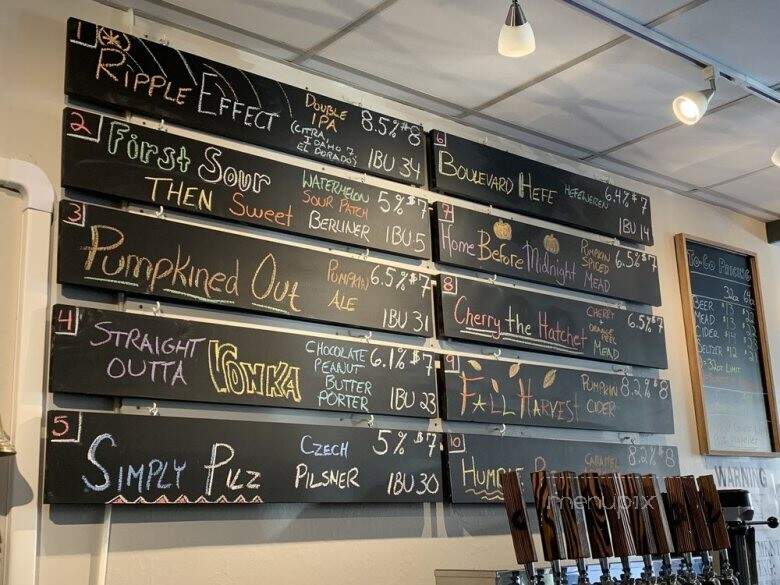 1
RIPPLE EFFECT
DOUBLE
IPA
(CITRA
IDAHO 7
EL DORADO)
8.5% $8
IBU 34
2
First Sour
THEN Sweet
WATERMELON
SOUR PATCH
BERLINER
5% $7
IBU 5
3
Pumpkined Out
PUMPKIN
ALE
6.5% $7
IBU 31
4
STRAIGHT
OUTTA
VONKA
CHOCOLATE
PEANUT
BUTTER
PORTER
6.1% $7
IBU 23
5
SIMPLY PILZ
CZECH
PILSNER
5% $7
IBU 30
6
BOULEVARD HEFE
HEFEWEREN
6.4% $7
IBU 14
7
Home Before Midnight
PUMPKIN
SPICED
MEAD
6.5% $7
8
Cherry the Hatchet
CHERRY
ORANGE
PEEL
MEAD
6.5% $7
9
FALL HARVEST
PUMPKIN
CIDER
8.2% $8
10
HUMBLE
CARAMEL
8.2% $8
TO-GO PRICING
32oz 64oz
BEER
MEAD
CIDER
SELTZER
32oz LIMIT
WARNING
menupix